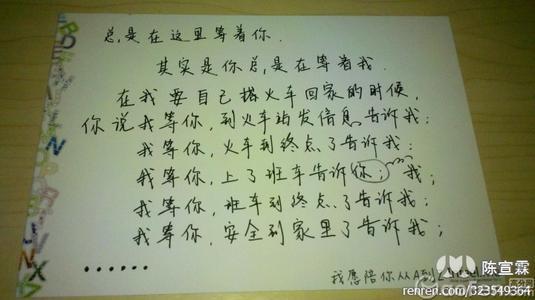 总是在这里等着你.
其实是你总是在等着我.
在我要自己搭火车回家的时候,
你说我等你,到火车站发信息告诉我;
我等你,火车到终点了告诉我;
我等你,上了班车告诉你;我;
我等你,班车到终点了告诉我;
我等你,安全到家里了告诉我;
......
我愿陪你从A到Z
陈宣霖
renren.com/323549364